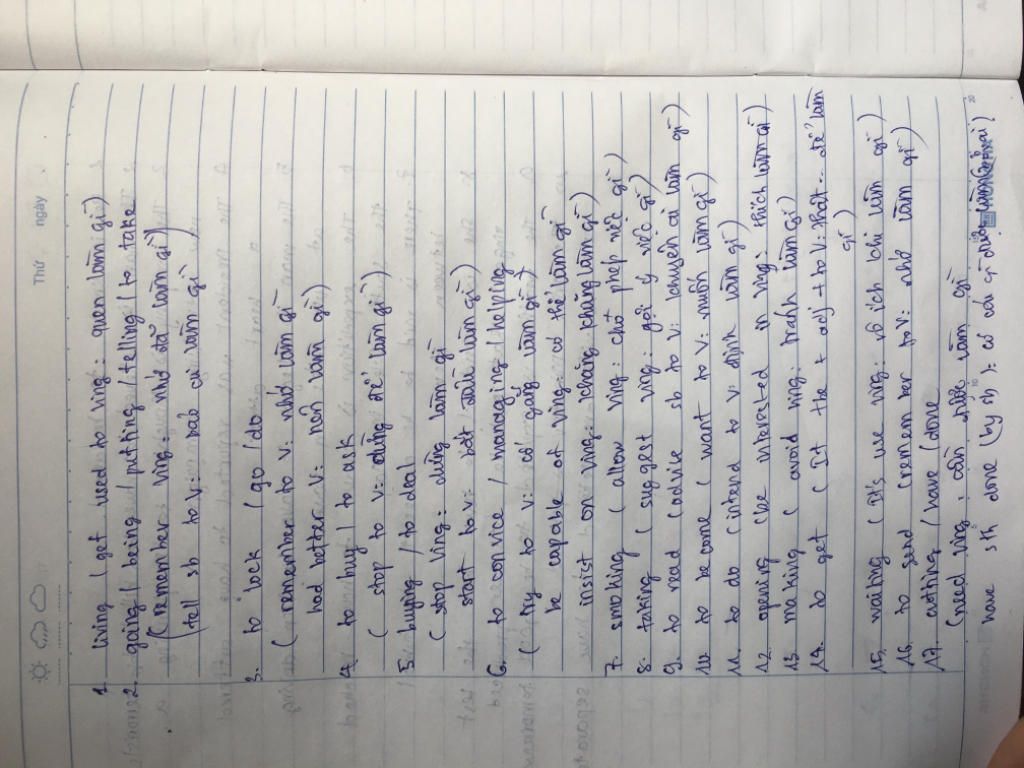 Thứ ngày
1. living (get used to Ving: quen làm gì)
2. going / being / putting / telling / to take
( remember Ving: nhớ đã làm gì
( tell sb to V: bảo ai làm gì )
3. to lock / go / do
( remember to V: nhớ làm gì
had better V: nên làm gì )
4. to buy / to ask
( stop to V: dừng để làm gì )
5. buying / to deal
( stop Ving: dừng làm gì
start to V: bắt đầu làm gì )
6. to convice / managing / helping
( try to V: cố gắng làm gì
be capable of Ving: có thể làm gì
insist on Ving: khăng khăng làm gì )
7. smoking ( allow Ving: cho phép việc gì )
8. taking ( suggest Ving: gợi ý việc gì )
9. to read ( advise sb to V: khuyên ai làm gì )
10. to be come ( want to V: muốn làm gì )
11. to do ( intend to V: định làm gì )
12. opening (be interested in Ving: thích làm gì )
13. making ( avoid Ving: tránh làm gì )
14. to get ( It the + adj + to V: thật... để làm
gì )
15. waiting ( It's use Ving: vô ích khi làm gì )
16. to send (remember to V: nhớ làm gì )
17. cutting / have / done
(need Ving: cần được làm gì
have sth done (by sb): có cái gì được